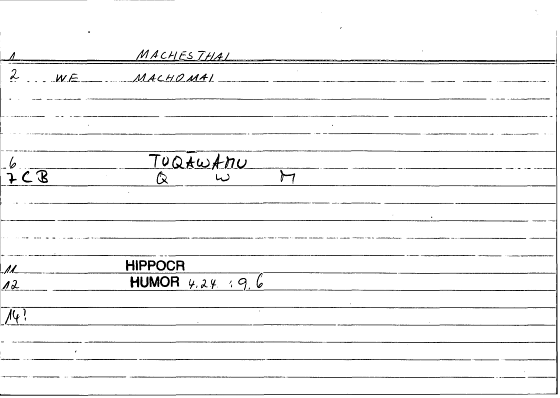 1 MACHESTHAI
2 WE MACHOMAI
6 TUQĀWAMU
7 CB Q W M
11 HIPPOCR
12 HUMOR 4.24 : 9.6
14?